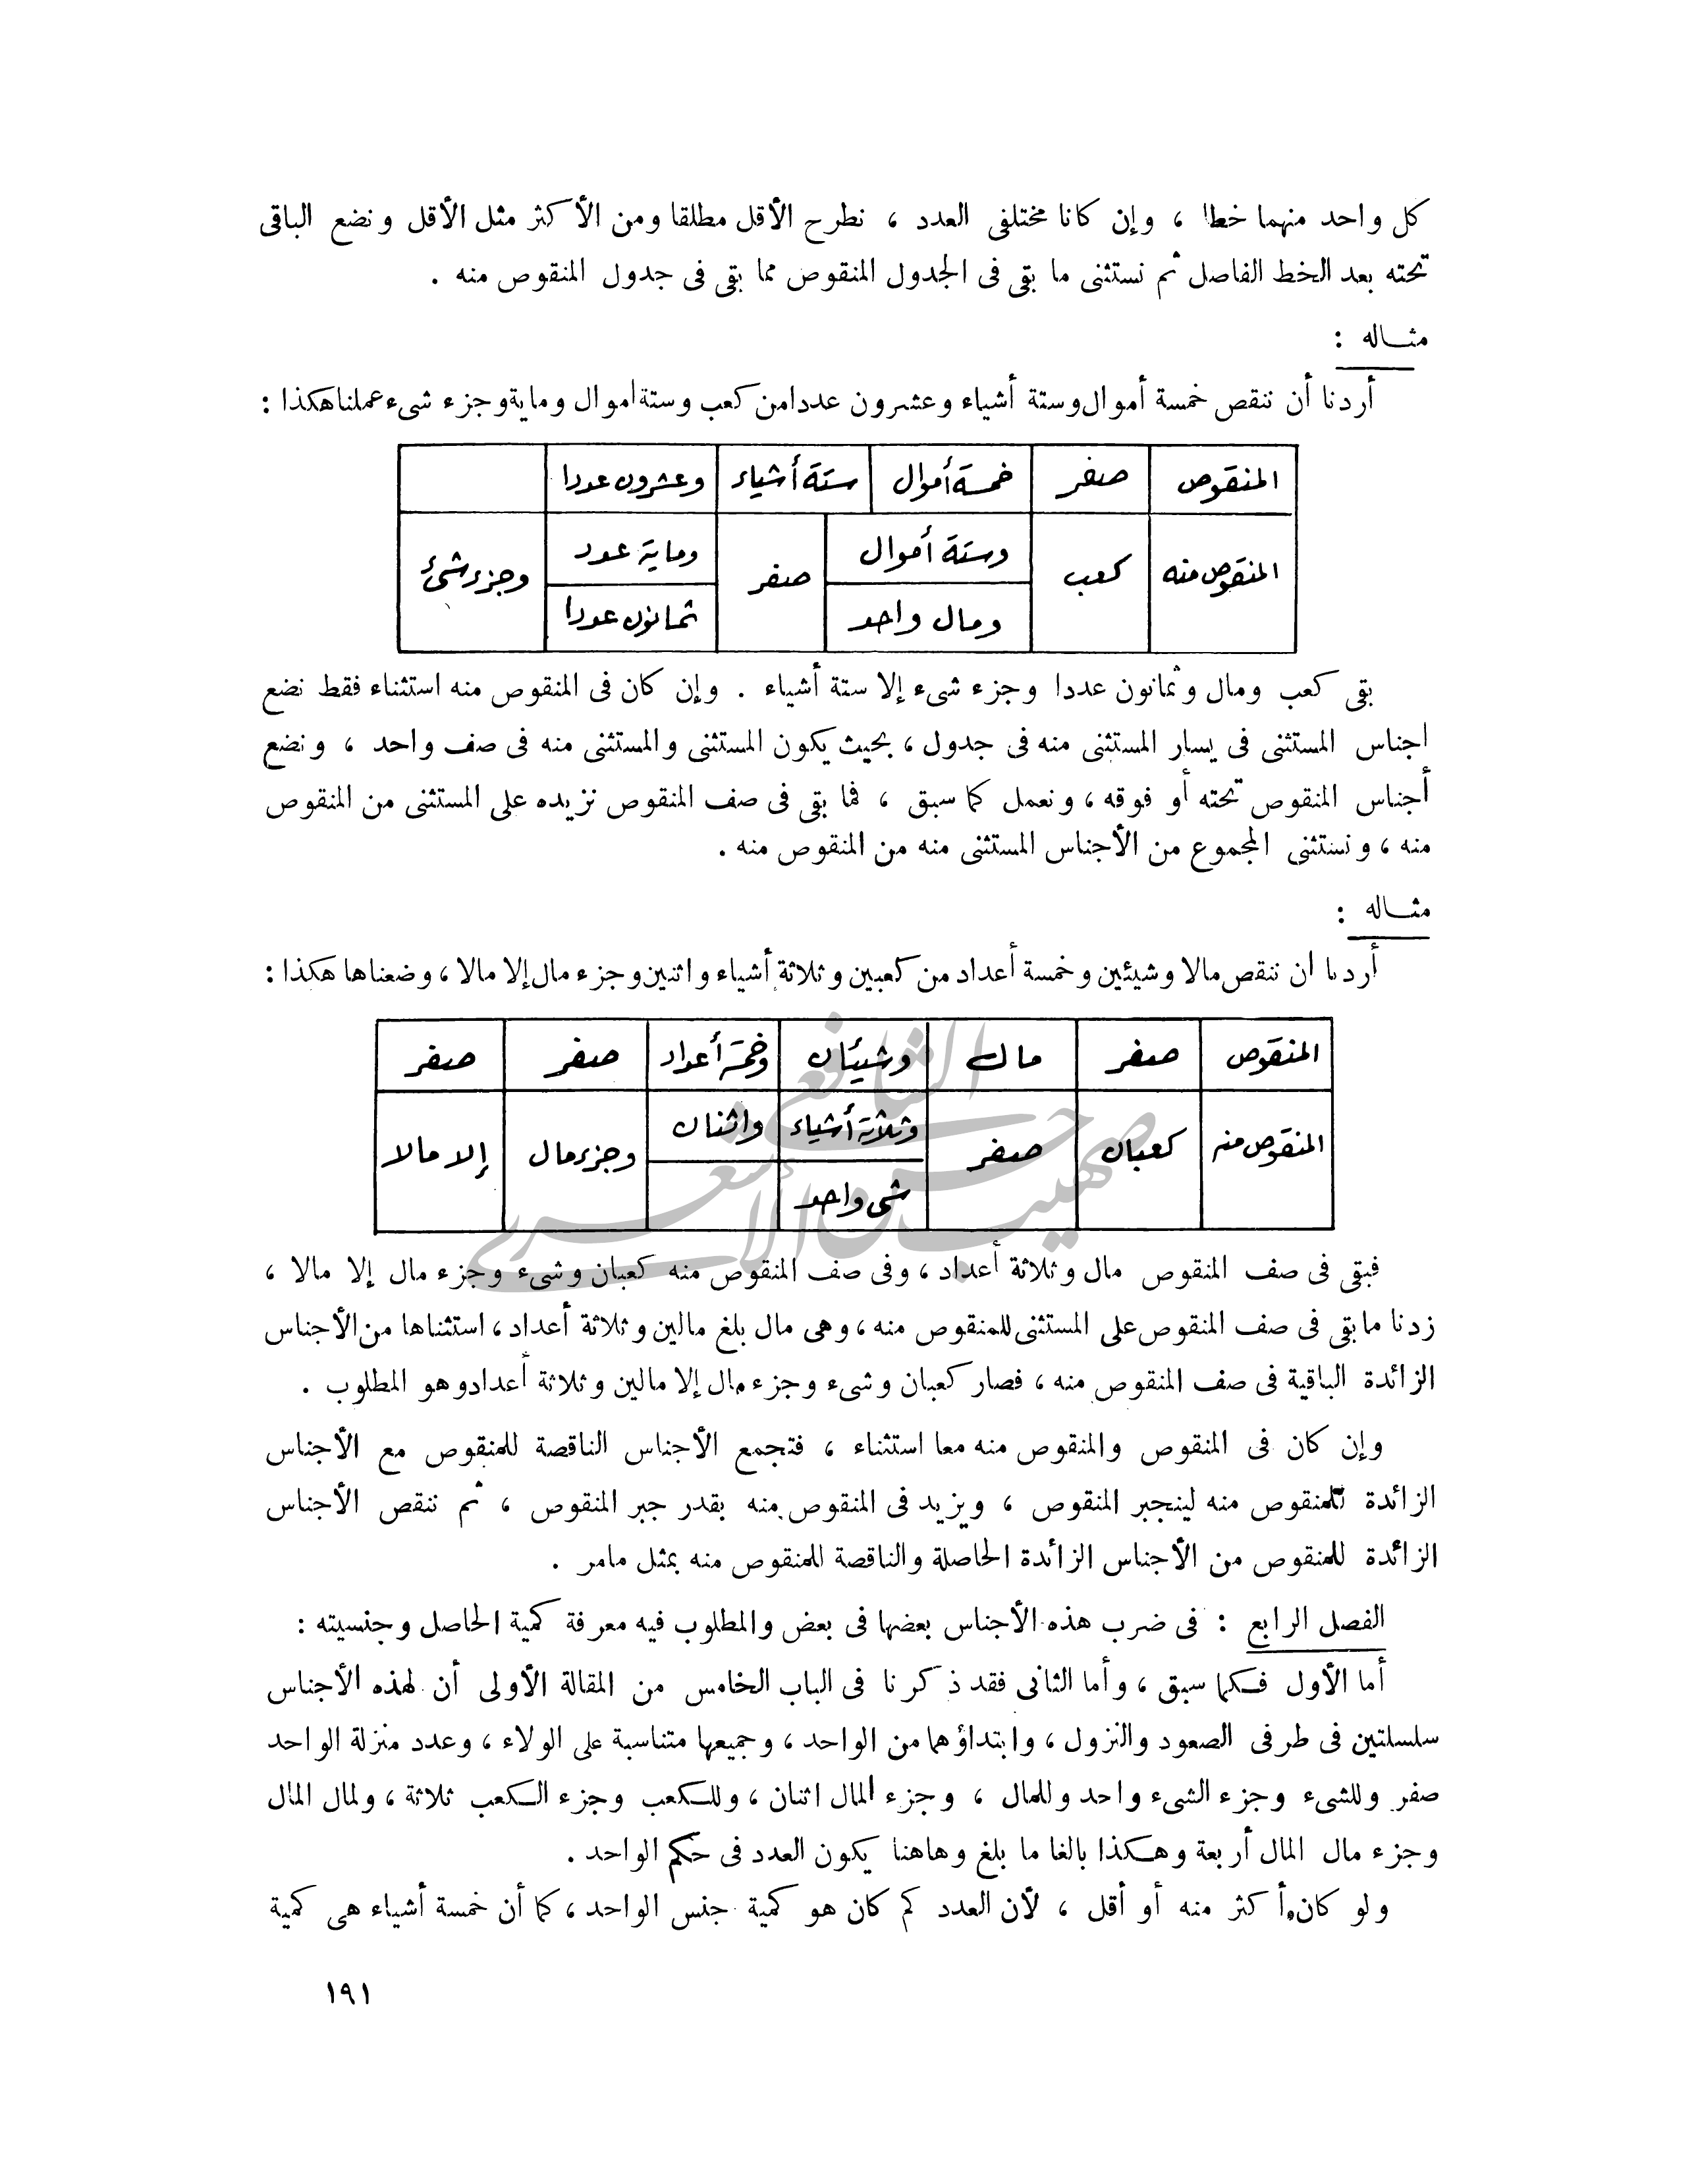 كل واحد منهما خطا ، وإن كانا مختلفى العدد ، نطرح الأقل مطلقا ومن الأكثر مثل الأقل ونضع الباقى
تحته بعد الخط الفاصل ثم نستثنى ما بقى فى الجدول المنقوص مما بقى فى جدول المنقوص منه .
مثـاله :
أردنا أن ننقص خمسة أموال وستة أشياء وعشرون عددا من كعب وستة اموال وماية وجزء شىء عملنا هكذا :
المنقوص صفر خمسة أموال ستة أشياء وعشرون عددا
المنقوص منه كعب وستة أموال صفر وماية عدد وجزء شئ
ومال واحد ثمانون عددا
بقى كعب ومال وثمانون عددا وجزء شىء إلا ستة أشياء . وإن كان فى المنقوص منه استثناء فقط نضع
اجناس المستثنى فى يسار المستثنى منه فى جدول ، بحيث يكون المستثنى والمستثنى منه فى صف واحد ، ونضع
أجناس المنقوص تحته أو فوقه ، ونعمل كما سبق ، فما بقى فى صف المنقوص نزيده على المستثنى من المنقوص
منه ، ونستثنى المجموع من الأجناس المستثنى منه من المنقوص منه .
مثـاله :
أردنا ان ننقص مالا وشيئين وخمسة أعداد من كعبين وثلاثة أشياء واثنين وجزء مال إلا مالا ، وضعناها هكذا :
المنقوص صفر مال وشيئان وخمسة أعداد صفر صفر
المنقوص منه كعبان صفر وثلاثة أشياء واثنان وجزء مال إلا مالا
شى واحد
صهيب حسن الشافعي الأشعري
فبقى فى صف المنقوص مال وثلاثة أعداد ، وفى صف المنقوص منه كعبان وشىء وجزء مال إلا مالا ،
زدنا ما بقى فى صف المنقوص على المستثنى للمنقوص منه ، وهى مال بلغ مالين وثلاثة أعداد ، استثناها من الأجناس
الزائدة الباقية فى صف المنقوص منه ، فصار كعبان وشىء وجزء مال إلا مالين وثلاثة أعداد وهو المطلوب .
وإن كان فى المنقوص والمنقوص منه معا استثناء ، فتجمع الأجناس الناقصة للمنقوص مع الأجناس
الزائدة للمنقوص منه لينجبر المنقوص ، ويزيد فى المنقوص منه بقدر جبر المنقوص ، ثم ننقص الأجناس
الزائدة للمنقوص من الأجناس الزائدة الحاصلة والناقصة للمنقوص منه بمثل مامر .
الفصل الرابع : فى ضرب هذه الأجناس بعضها فى بعض والمطلوب فيه معرفة كمية الحاصل وجنسيته :
أما الأول فـكما سبق ، وأما الثانى فقد ذكرنا فى الباب الخامس من المقالة الأولى أن لهذه الأجناس
سلسلتين فى طرفى الصعود والنزول ، وابتداؤهما من الواحد ، وجميعها متناسبة على الولاء ، وعدد منزلة الواحد
صفر وللشىء وجزء الشىء واحد وللمال ، وجزء المال اثنان ، وللـكعب وجزء الـكعب ثلاثة ، ولمال المال
وجزء مال المال أربعة وهـكذا بالغا ما بلغ وهاهنا يكون العدد فى حكم الواحد .
ولو كان أكثر منه أو أقل ، لأن العدد كم كان هو كمية جنس الواحد ، كما أن خمسة أشياء هى كمية
١٩١